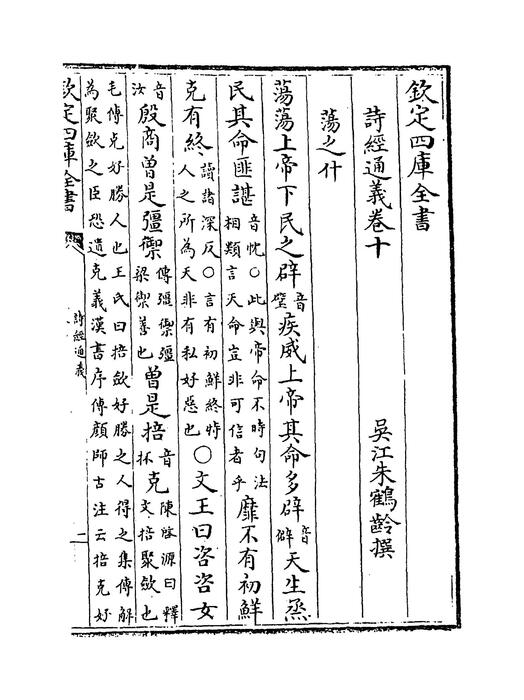 欽定四庫全書
詩經通義卷十
吳江朱鶴齡撰
蕩之什
蕩蕩上帝下民之辟音璧疾威上帝其命多辟音僻天生烝
民其命匪諶音忱○此與帝命不時句法相類言天命豈非可信者乎靡不有初鮮
克有終讀諸深反○言有初鮮終特人之所為天非有私好惡也○文王曰咨咨女
音汝殷商曾是彊禦傳彊禦彊梁禦善也曾是掊音杯克陳啓源曰釋文掊聚斂也
毛傳克好勝人也王氏曰掊斂好勝之人得之集傳解
為聚斂之臣恐遺克義漢書序傳顔師古注云掊克好
欽定四庫全書
詩經通義